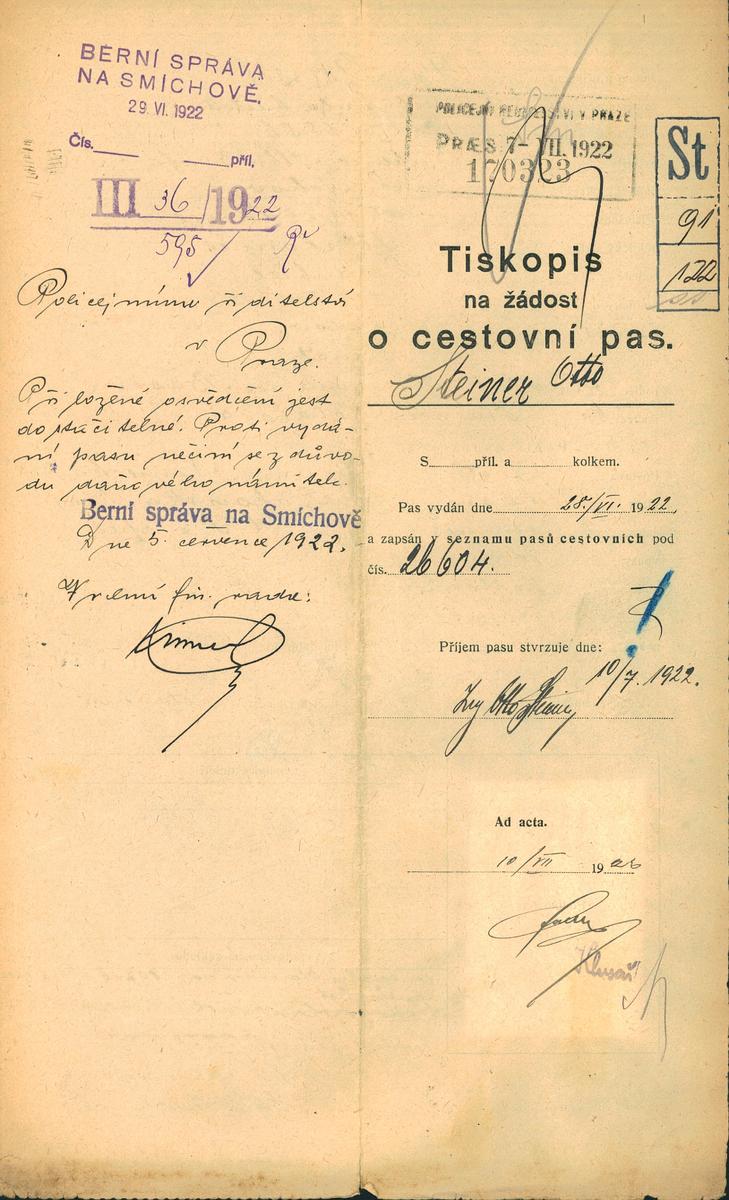 BERNÍ SPRÁVA
NA SMÍCHOVĚ.
29. VI. 1922
Čís. příl.
III 36/1922
595
Policejnímu ředitelství
v Praze.
Přiložené osvědčení jest
dostačitelné. Proti vydá-
ní pasu nečiní se z důvo-
du daňového námitek.
Berní správa na Smíchově
Dne 5. července 1922.
Vrchní fin. rada:
POLICEJNÍ ŘEDITELSTVÍ V PRAZE
PRÆS. 7-VII. 1922
170323
St
91
122
Tiskopis
na žádost
o cestovní pas.
Steiner Otto
S příl. a kolkem.
Pas vydán dne 28./VI. 1922,
a zapsán v seznamu pasů cestovních pod
čís. 26604.
Příjem pasu stvrzuje dne:
10/7. 1922.
Ing Otto Steiner
Ad acta.
10/VII 19